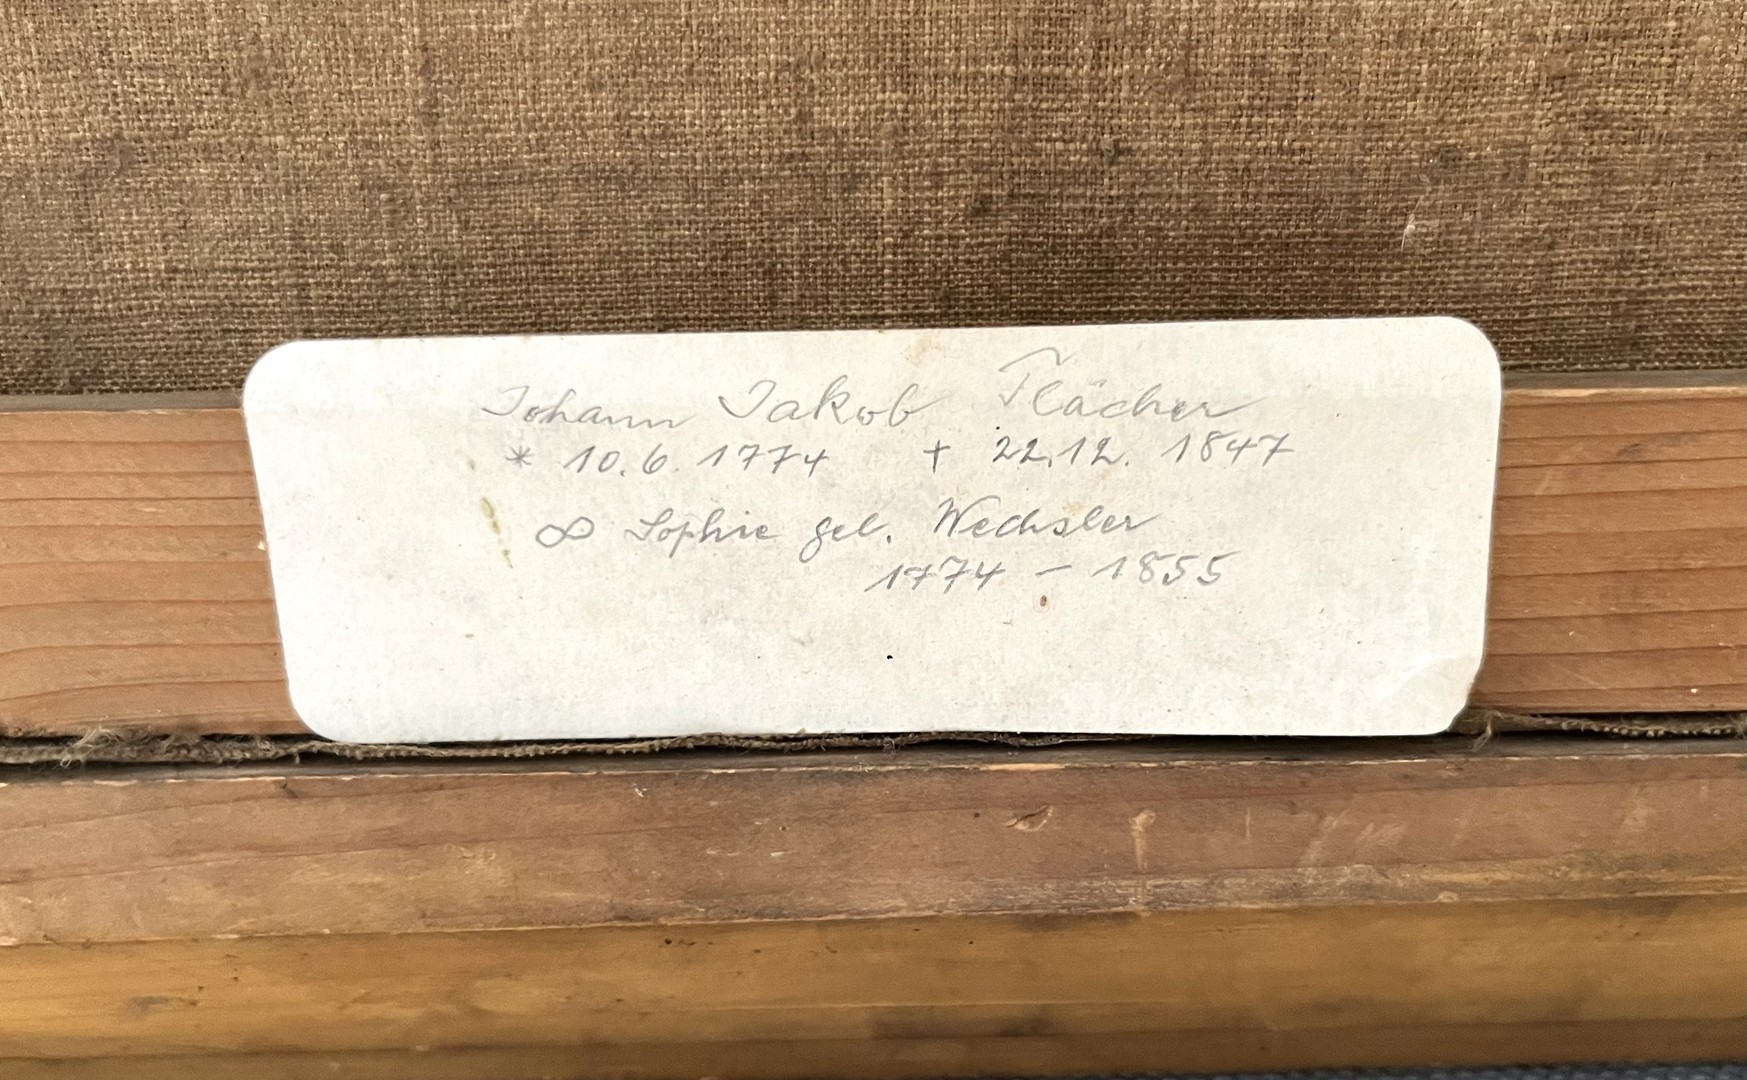 Johann Jakob Flächer
* 10.6.1774 † 22.12.1847
∞ Sophie geb. Wechsler
1774 – 1855